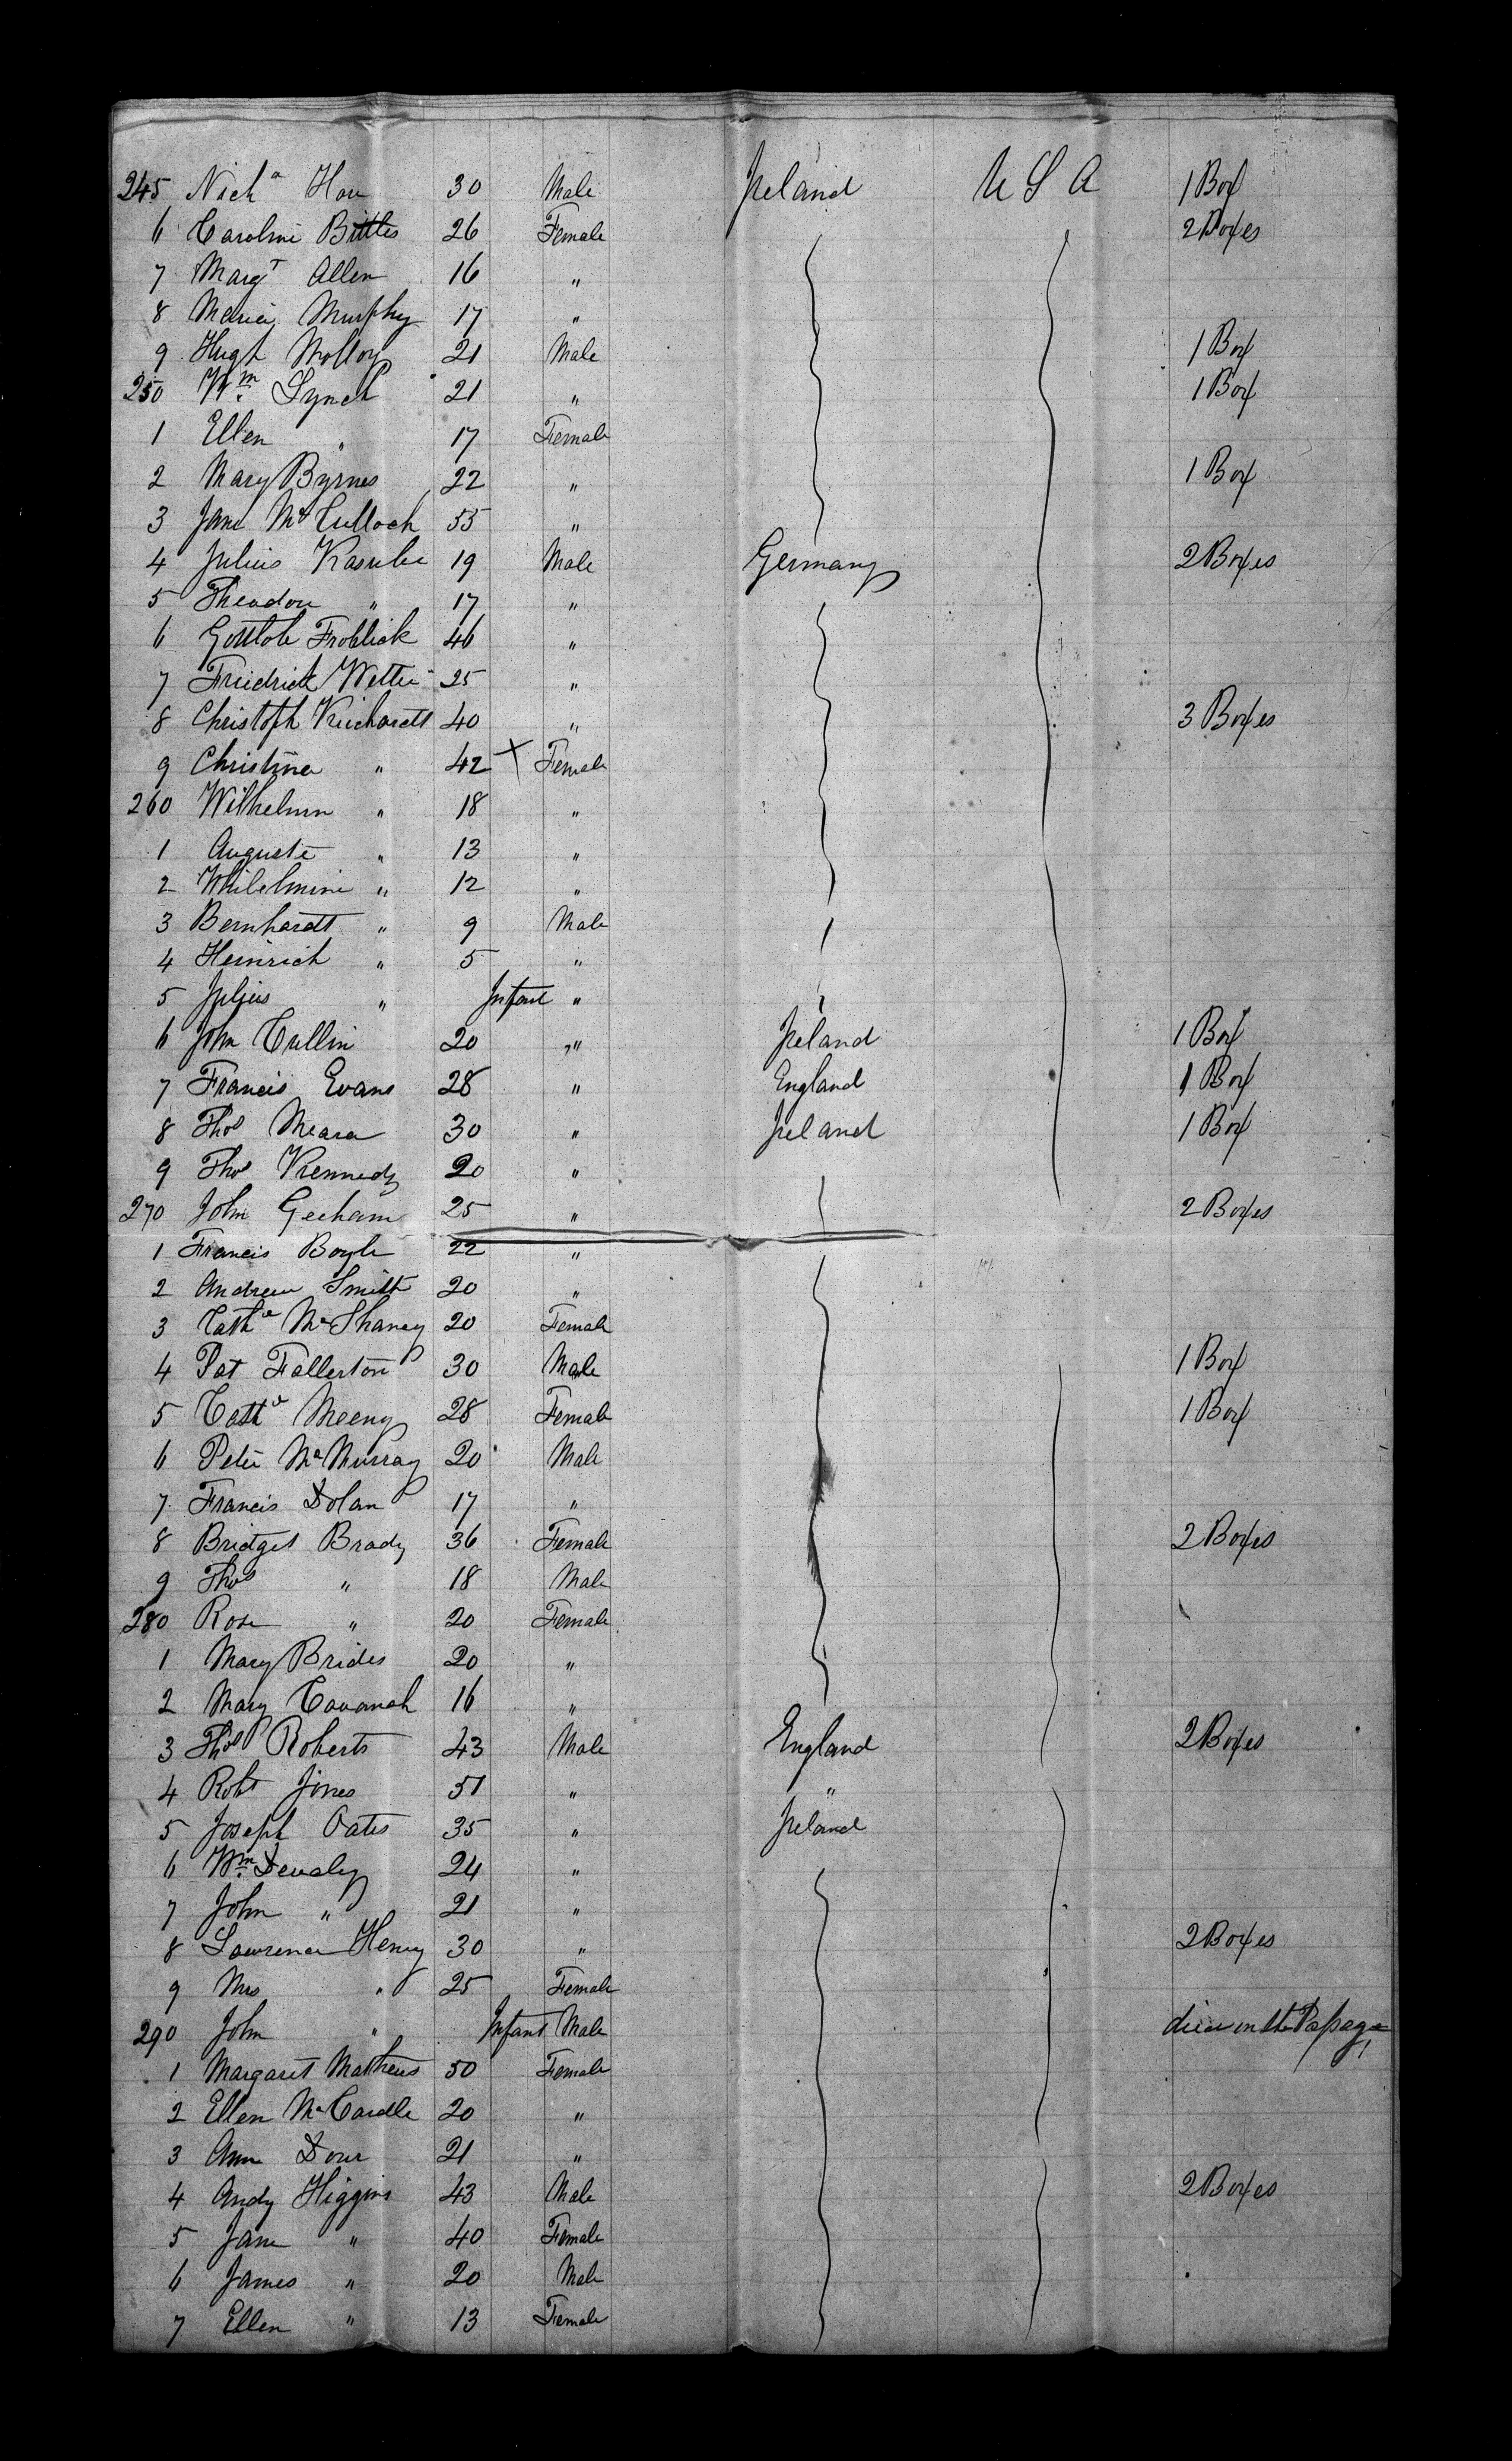 245 Nichs Hou 30 Male Ireland U S A 1 Box
6 Caroline Bittles 26 Female 2 Boxes
7 Margt Allen 16 "
8 Maria Murphy 17 "
9 Hugh Molloy 21 Male 1 Box
250 Wm Lynch 21 " 1 Box
1 Ellen " 17 Female
2 Mary Byrnes 22 " 1 Box
3 Jane McCulloch 55 "
4 Julius 19 Male Germany 2 Boxes
5 Theodor " 17 "
6 Gottlob Frohlick 46 "
7 Friedrich 25 "
8 Christoph 40 " 3 Boxes
9 Christina " 42 X Female
260 Wilhelmn " 18 "
1 Auguste " 13 "
2 Whilelmine " 12 "
3 Bernhardt " 9 Male
4 Heinrich " 5 "
5 Julius " Infant "
6 John Cullin 20 " Ireland 1 Box
7 Francis Evans 28 " England 1 Box
8 Thos Meara 30 " Ireland 1 Box
9 Thos Kennedy 20 "
270 John Geeham 25 " 2 Boxes
1 Francis Boyle 22 "
2 Andrew Smith 20 "
3 Cathe McShaney 20 Female
4 Pat Fallerton 30 Male 1 Box
5 Cathe Meeny 28 Female 1 Box
6 Peter McMurray 20 Male
7 Francis Dolan 17 "
8 Bridget Brady 36 Female 2 Boxes
9 Thos " 18 Male
280 Rose " 20 Female
1 Mary Brides 20 "
2 Mary Cavanah 16 "
3 Thos Roberts 43 Male England 2 Boxes
4 Robt Jones 51 " "
5 Joseph Oates 35 " Ireland
6 Wm Devaly 24 "
7 John " 21 "
8 Lawrence Henry 30 " 2 Boxes
9 Mrs " 25 Female
290 John " Infant Male died on the Passage
1 Margaret Mathews 50 Female
2 Ellen McCardle 20 "
3 Ann 21 "
4 Andy Higgins 43 Male 2 Boxes
5 Jane " 40 Female
6 James " 20 Male
7 Ellen " 13 Female